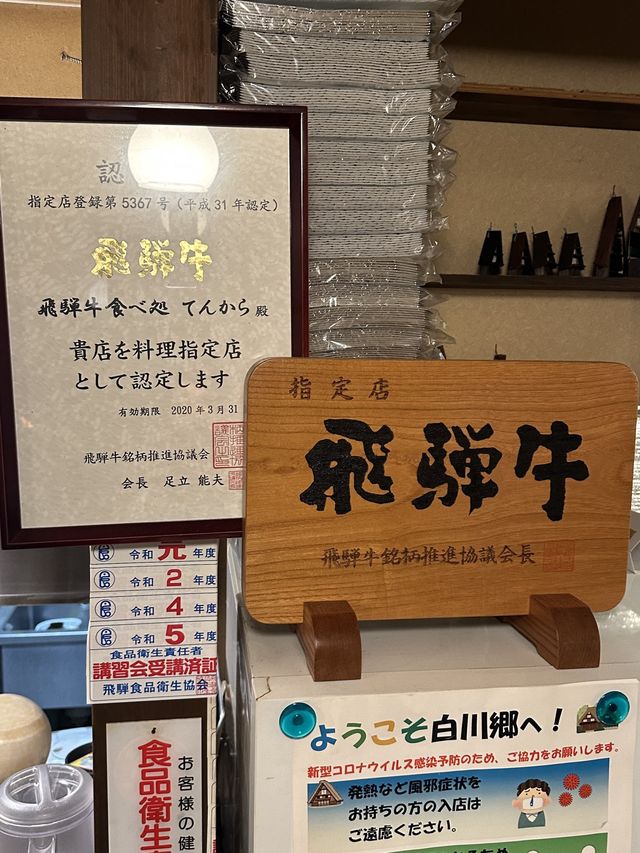 認
指定店登録第5367号(平成31年認定)
飛騨牛
飛騨牛食べ処 てんから 殿
貴店を料理指定店
として認定します
有効期限 2020年3月31
飛騨牛銘柄推進協議会
会長 足立 能夫
指定店
飛騨牛
飛騨牛銘柄推進協議会長
令和 元 年度
令和 2 年度
令和 4 年度
令和 5 年度
食品衛生責任者
講習会受講済証
飛騨食品衛生協会
お客様の健
食品衛生
ようこそ白川郷へ!
新型コロナウイルス感染予防のため、ご協力をお願いします。
発熱など風邪症状を
お持ちの方の入店は
ご遠慮ください。